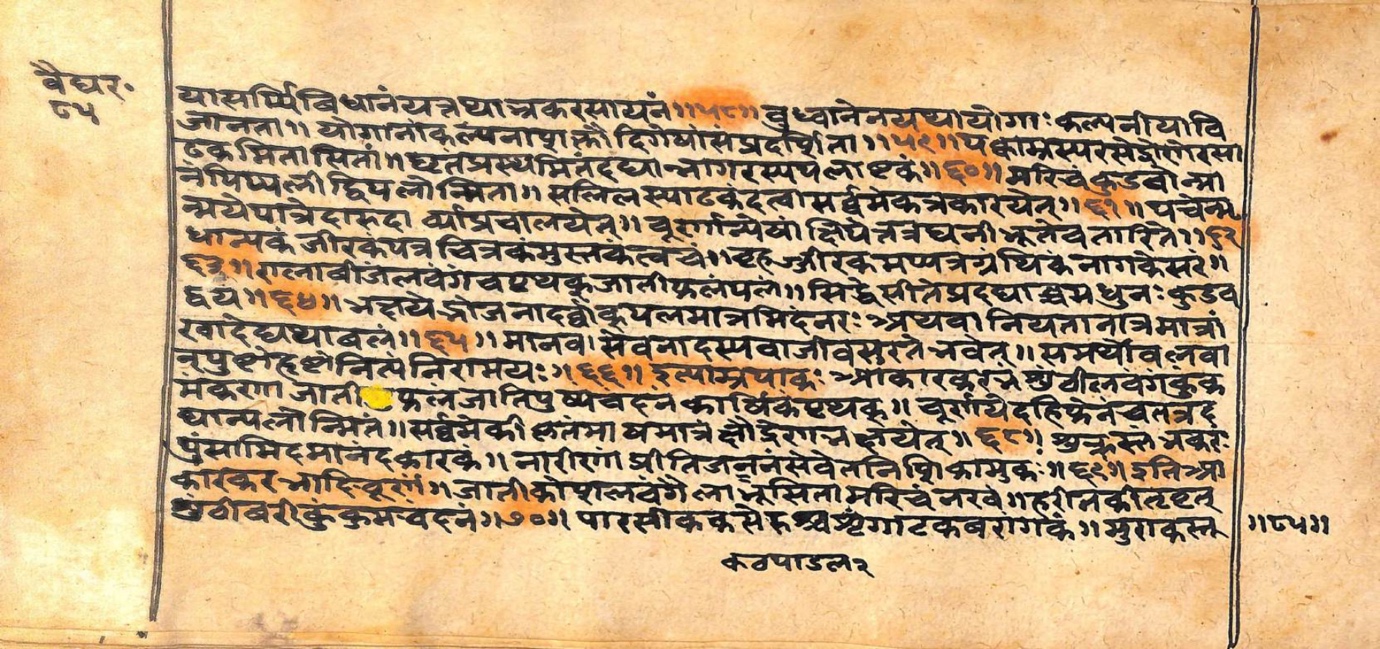 वैद्यर॰
८५
यासर्पिर्विधानं यत्र था त्रकरसायनं ॥५८॥ बुध्वानेनयथायोगाः कल्पनीयावि
जानता ॥ योगानांकल्पनाशक्तौदिगेषांसंप्रदर्शिता ॥५९॥ पक्वाम्रस्परसेद्रोणेरसा
ढकमितासितां ॥ घृतंप्रस्थमितंदद्यान्नागरस्यपलाष्टकं ॥६०॥ मरिचंकुडवोन्मा
नंपिप्पलीद्विपलोन्मिता ॥ सलिलस्याढकंदत्वासर्व्वमेकत्रकारयेत् ॥६१॥ पचेन्मृ
न्मयेपात्रेदारुदार्व्याप्रचालयेत् ॥ चूर्णान्येषांक्षिपेत्तत्रघनीभूतेवतारिते ॥६२
धान्यकंजीरकंपत्रंचित्रकंमुस्तकंत्वचं ॥ बृहज्जीरकमप्पत्रग्रंथिकंनागकेसरं ॥
६३॥ एलाबीजलवंगंचपृथक्जातीफलंपलं ॥ सिद्धेशीतेप्रदद्याच्चमधुनःकुडव
द्वयं ॥६४॥ भक्षयेद्भोजनादर्व्वाक्पलमात्रमिदंनरः अथवानियतानात्रमात्रां
खादेद्यथाबलं ॥६५॥ मानवःसेवनादस्यवाजीवसुरतेभवेत् ॥ समर्थोबलवा
न्पुष्टोहृष्टोनित्यंनिरामयः ॥६६॥ इत्याम्रपाकः आकारकरभशुंठीलवंगकुंकु
मंकणाजाती फलंजातिपुष्पचंदनंकार्षिकंपृथक् ॥ चूर्णायेदहिफेनंचतत्रद
द्यात्पलोन्मितं ॥ सर्व्वमेकीकृतंमाषमात्रंक्षौद्रेणभक्षयेत् ॥६८॥ शुक्रस्तंभकरः
पुंसामिदमानंदकारकं ॥ नारीणांप्रीतिजननंसेवेतनिशिकामुकः ॥६९॥ इतिआ
कारकरभादिचूर्णं ॥ जातीकोशलवंगैलाभूसितामरिचंनखं ॥ हरीतकी
शुंठीवरीकुंकुमचंदनं ॥७०॥ पारसीककसेरुश्चशृंगाटकवरांगकं ॥ मुराकस्तू
॥८५॥
कवपाडल२